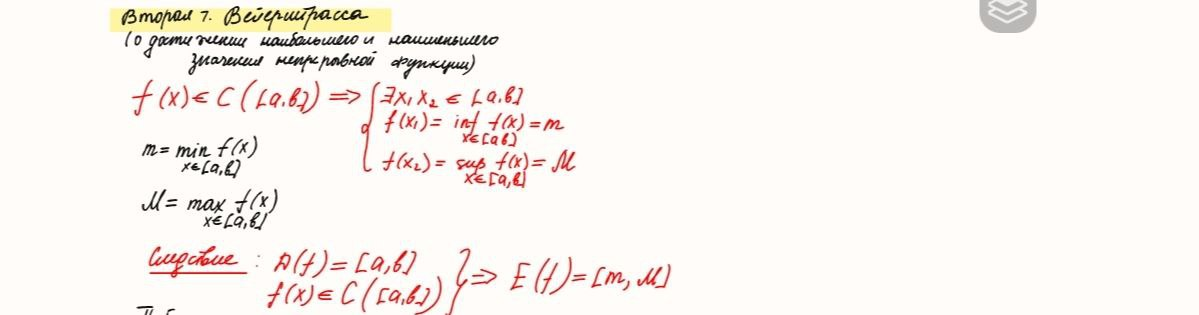 Вторая т. Вейерштрасса
(о достижении наибольшего и наименьшего
значения непрерывной функции)
f(x) ∈ C([a,b]) => { ∃x₁ x₂ ∈ [a,b]
f(x₁) = inf f(x) = m
x∈[a,b]
f(x₂) = sup f(x) = M
x∈[a,b]
m = min f(x)
x∈[a,b]
M = max f(x)
x∈[a,b]
Следствие : D(f) = [a,b]
f(x) ∈ C([a,b]) } => E(f) = [m, M]